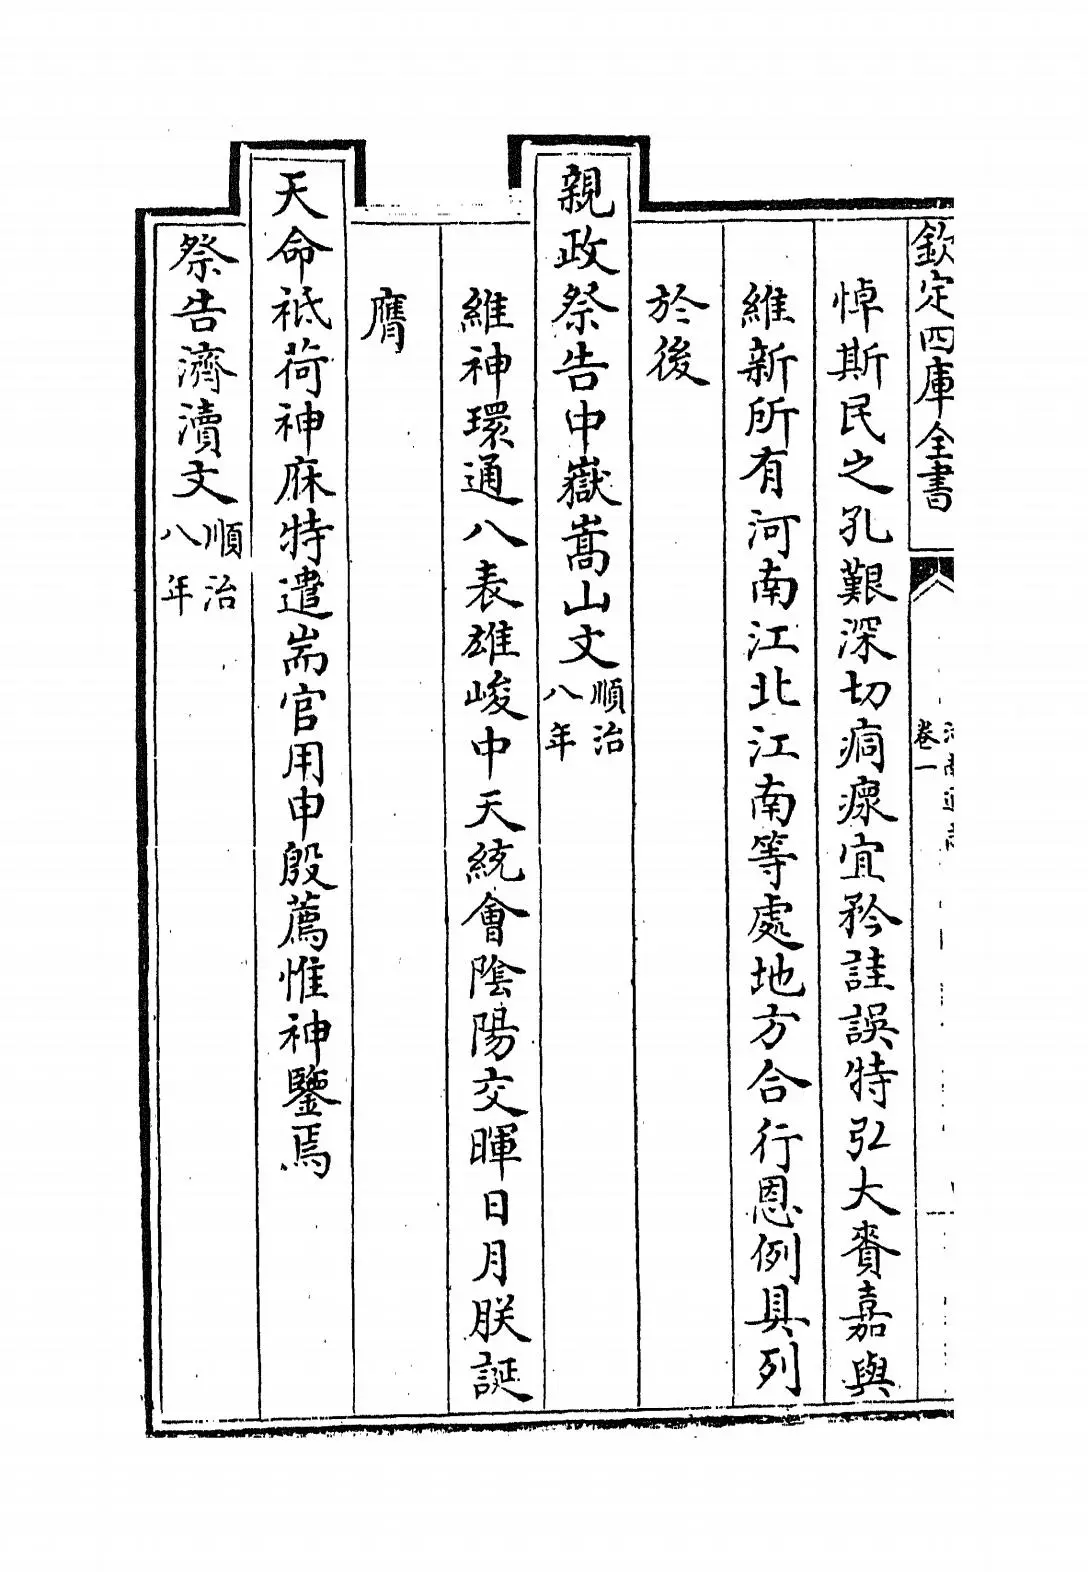 欽定四庫全書
卷一
悼斯民之孔艱深切痌瘝宜矜詿誤特弘大賚嘉與
維新所有河南江北江南等處地方合行恩例具列
於後
親政祭告中嶽嵩山文順治八年
維神環通八表雄峻中天統會陰陽交暉日月朕誕
膺
天命祗荷神庥特遣耑官用申殷薦惟神鑒焉
祭告濟瀆文順治八年